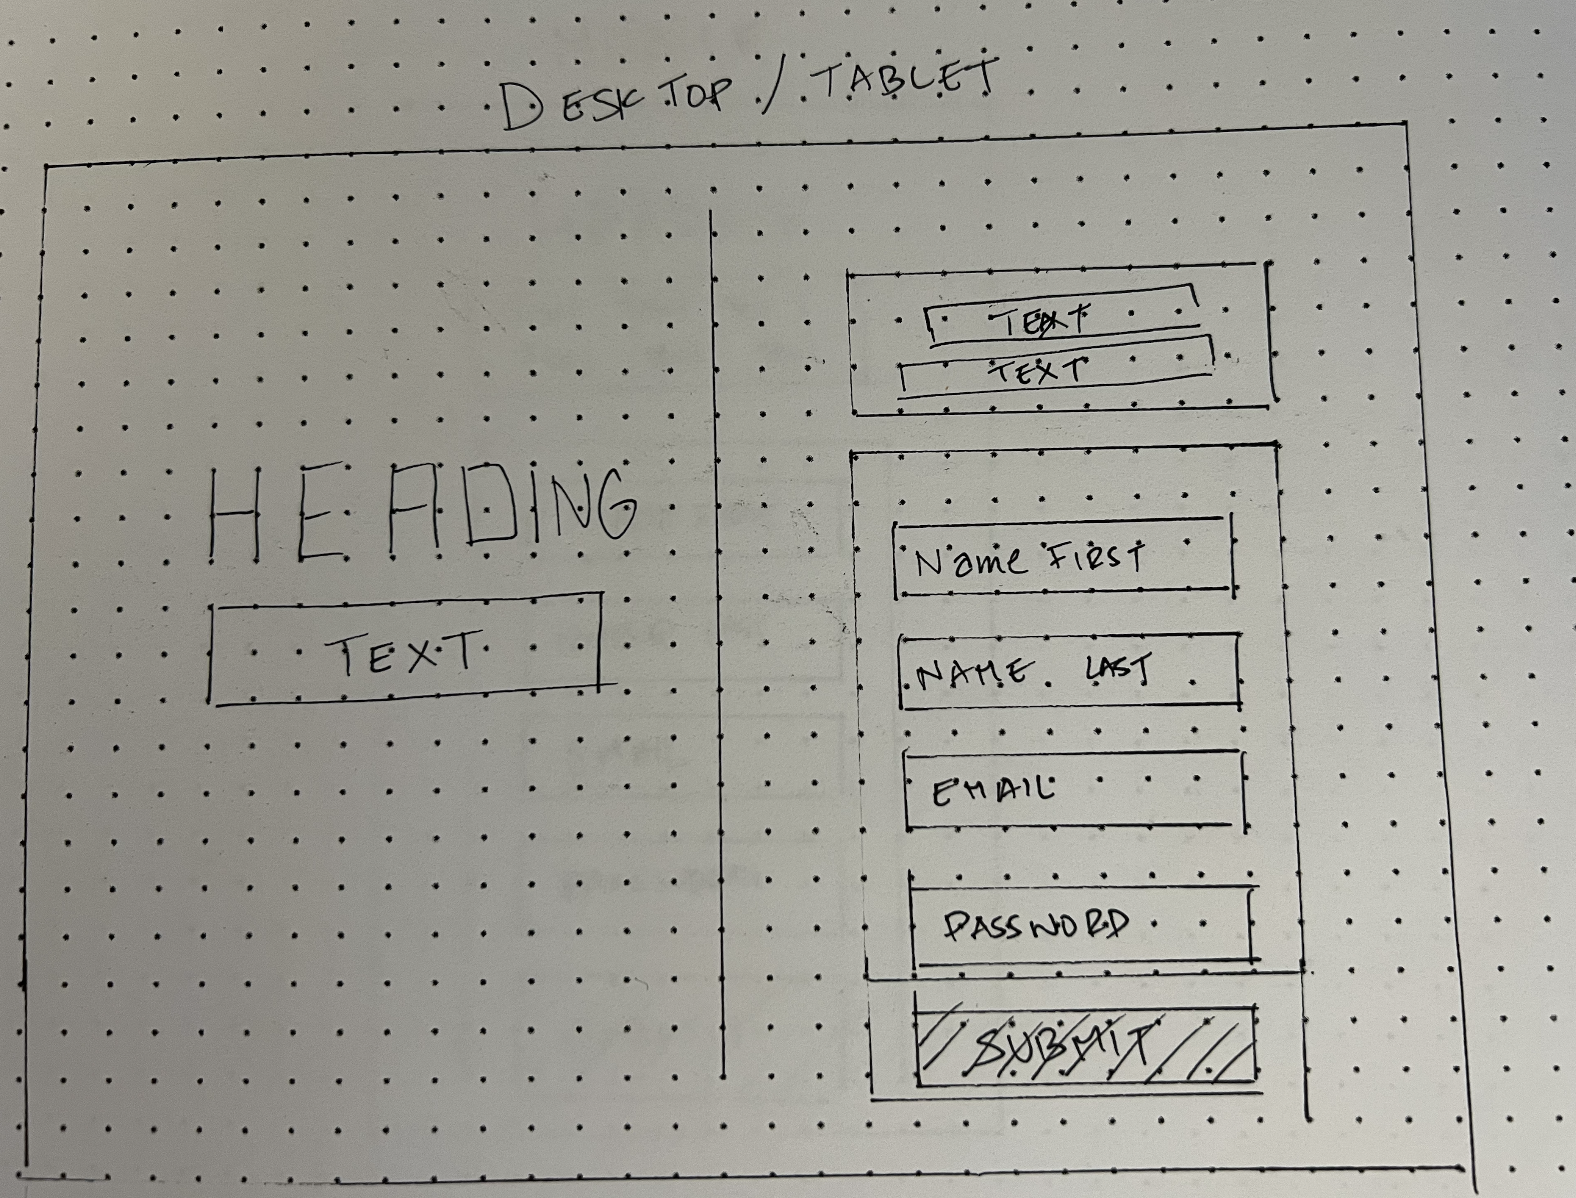 DESKTOP / TABLET
HEADING
TEXT
TEXT
TEXT
Name FIRST
NAME LAST
EMAIL
PASSWORD
SUBMIT